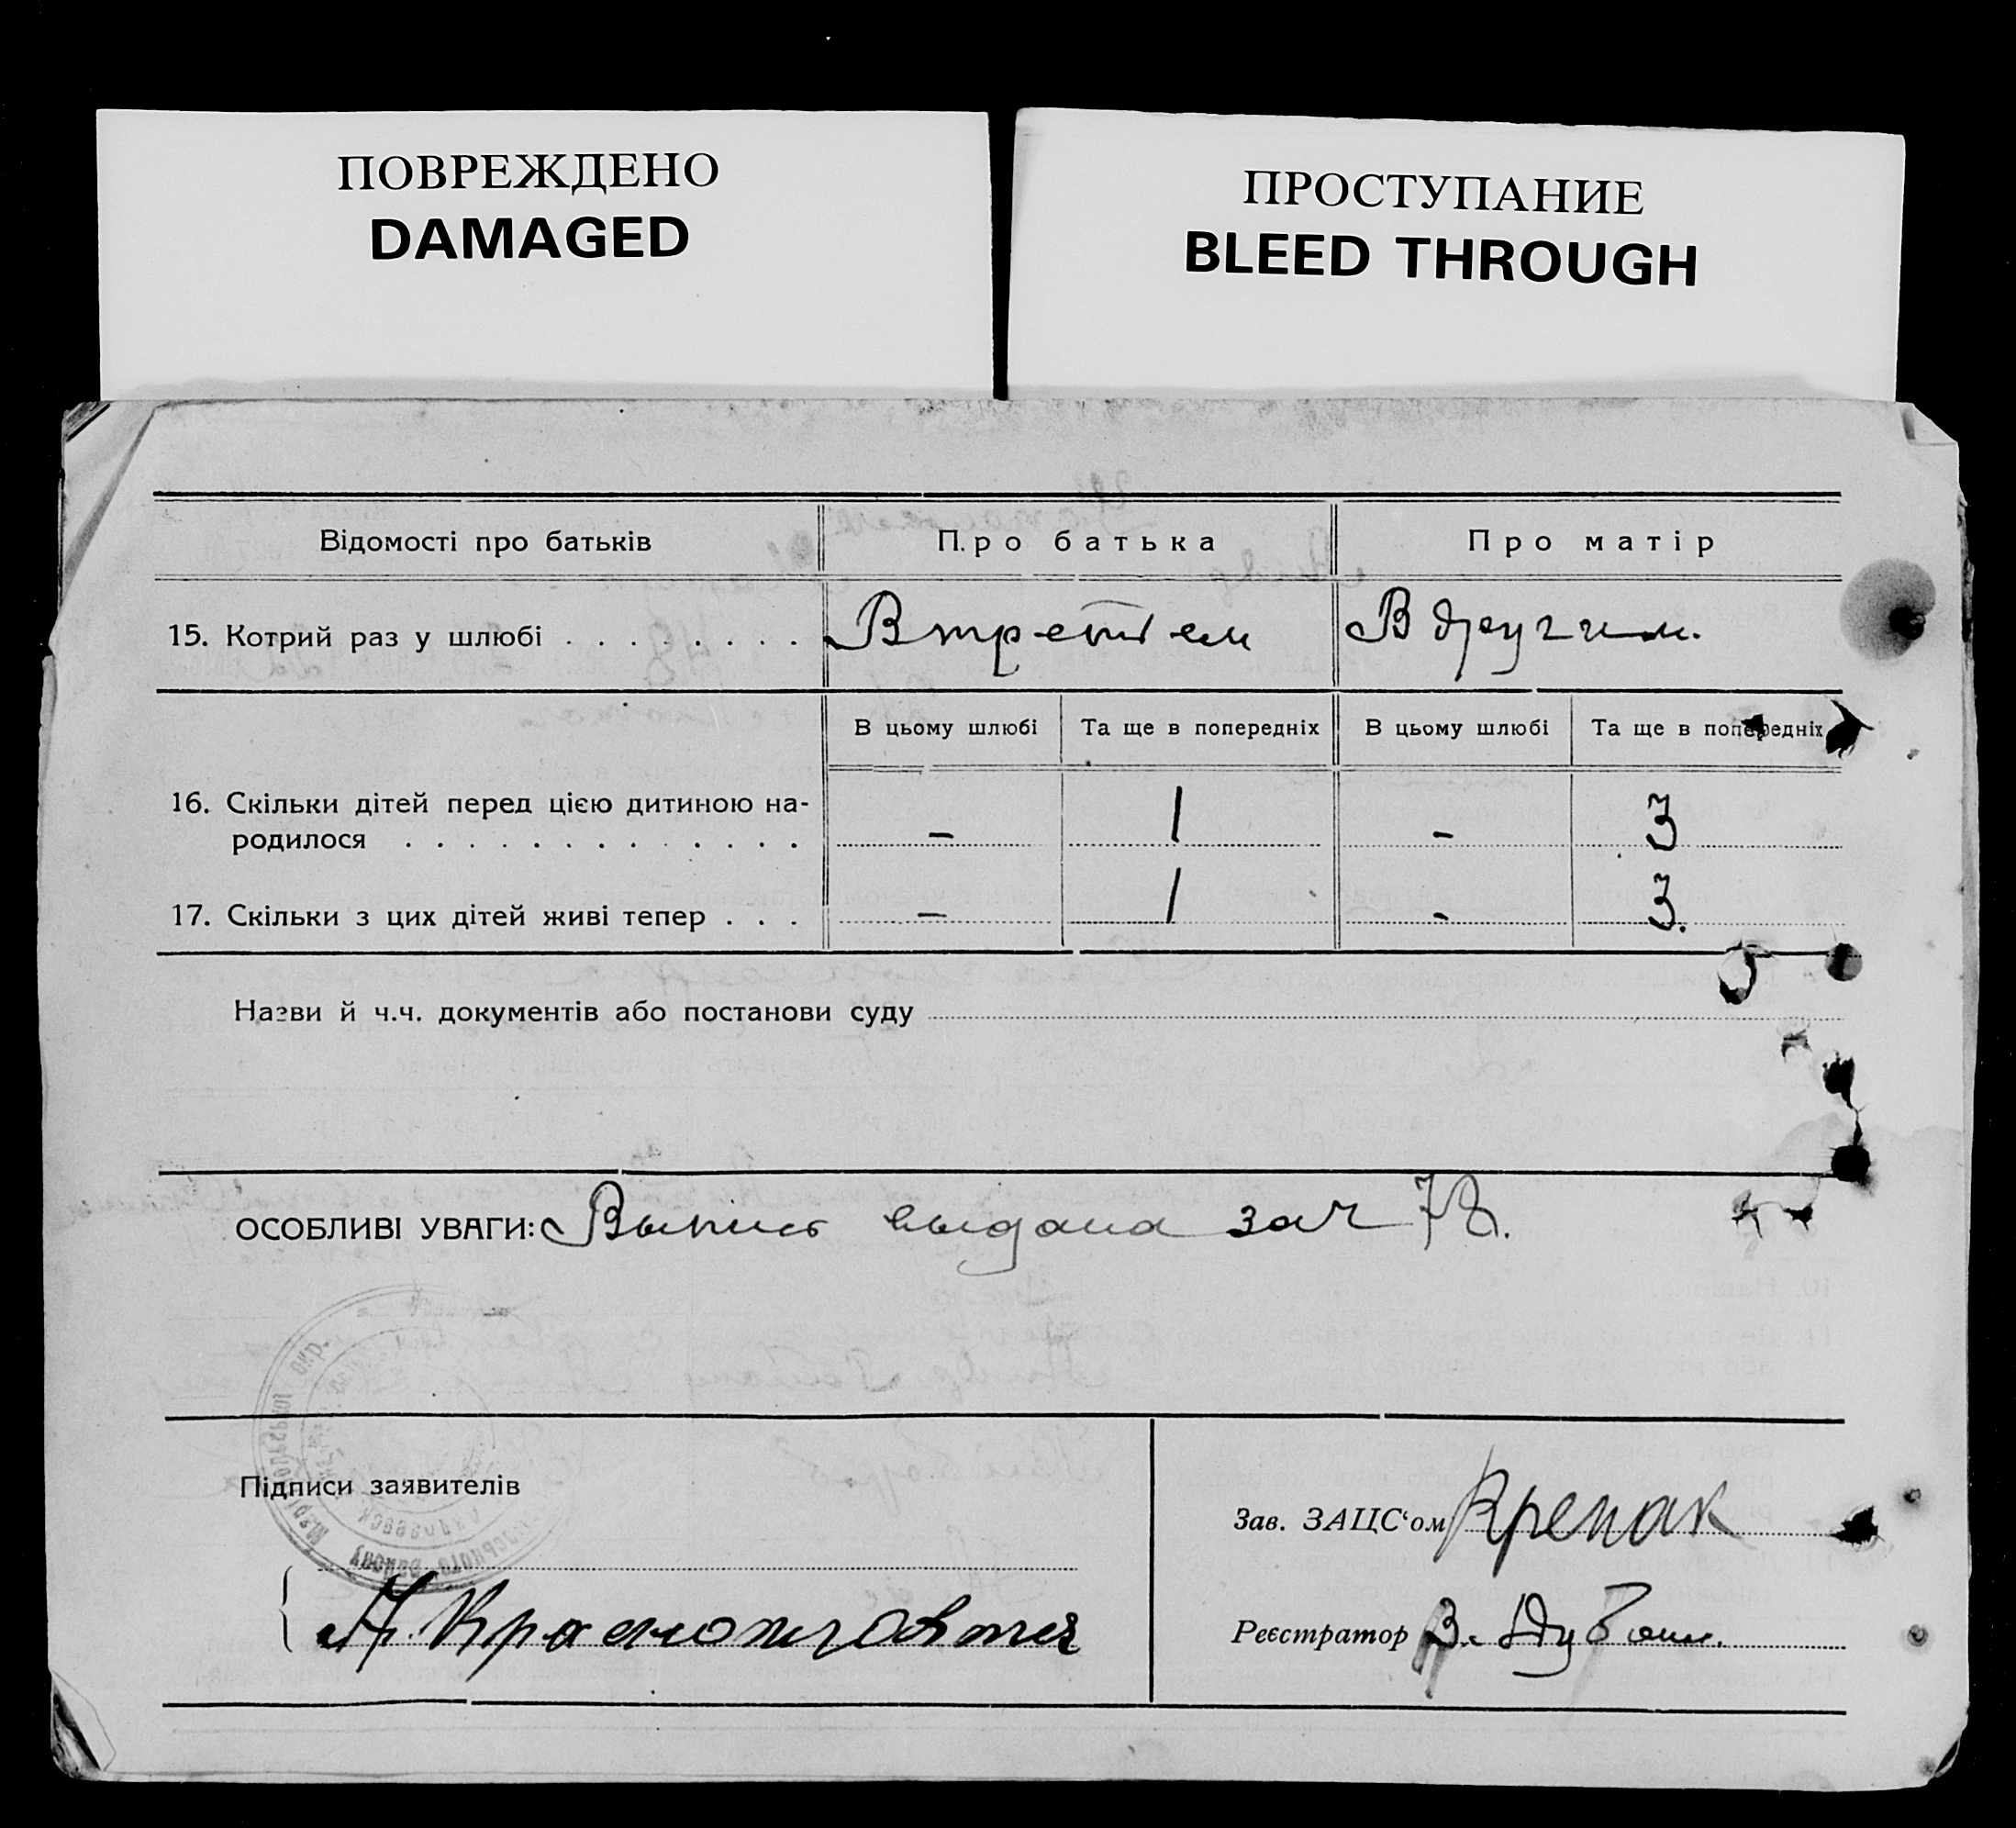 ПОВРЕЖДЕНО
DAMAGED
ПРОСТУПАНИЕ
BLEED THROUGH
Відомості про батьків
Про батька
Про матір
15. Котрий раз у шлюбі
В третьем
В другим.
В цьому шлюбі
Та ще в попередніх
В цьому шлюбі
Та ще в попередніх
16. Скільки дітей перед цією дитиною на-
родилося
- 1 - 3
17. Скільки з цих дітей живі тепер
- 1 - 3.
Назви й ч.ч. документів або постанови суду
ОСОБЛИВІ УВАГИ: Выпись выдана за ч 78.
Підписи заявителів
Зав. ЗАЦС‘ом Крепак
Реєстратор В.